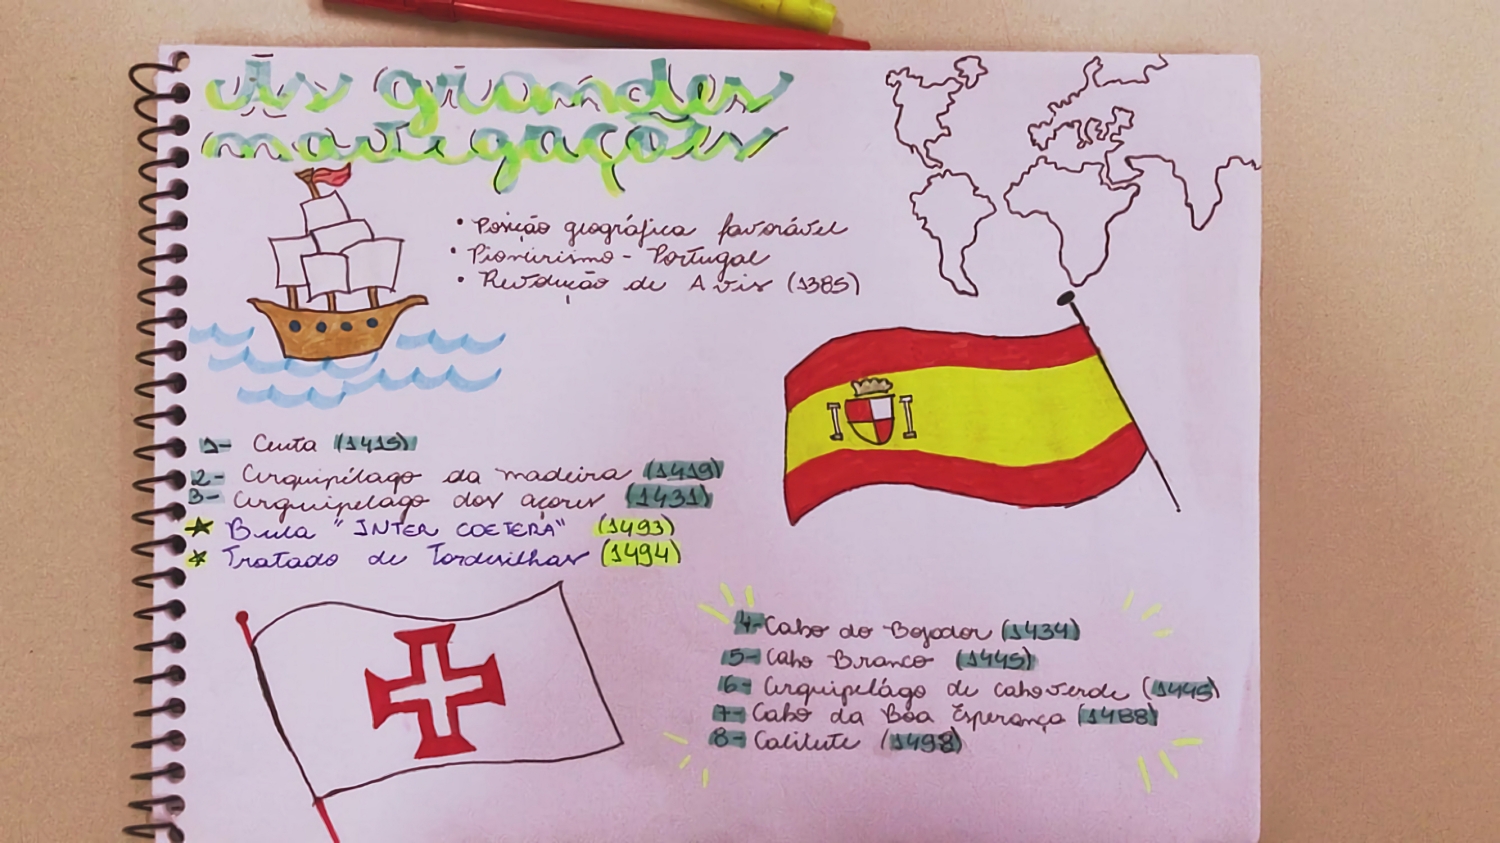 As grandes
navegações
• Posição geográfica favorável
• Pioneirismo - Portugal
• Revolução de Avis (1385)
1- Ceuta (1415)
2- Arquipélago da madeira (1419)
3- Arquipelago dos açores (1431)
Bula "INTER COETERA" (1493)
Tratado de Tordesilhas (1494)
4- Cabo do Bojador (1434)
5- Cabo Branco (1445)
6- Arquipélago de cabo verde (1445)
7- Cabo da Boa Esperança (1488)
8- Calicute (1498)